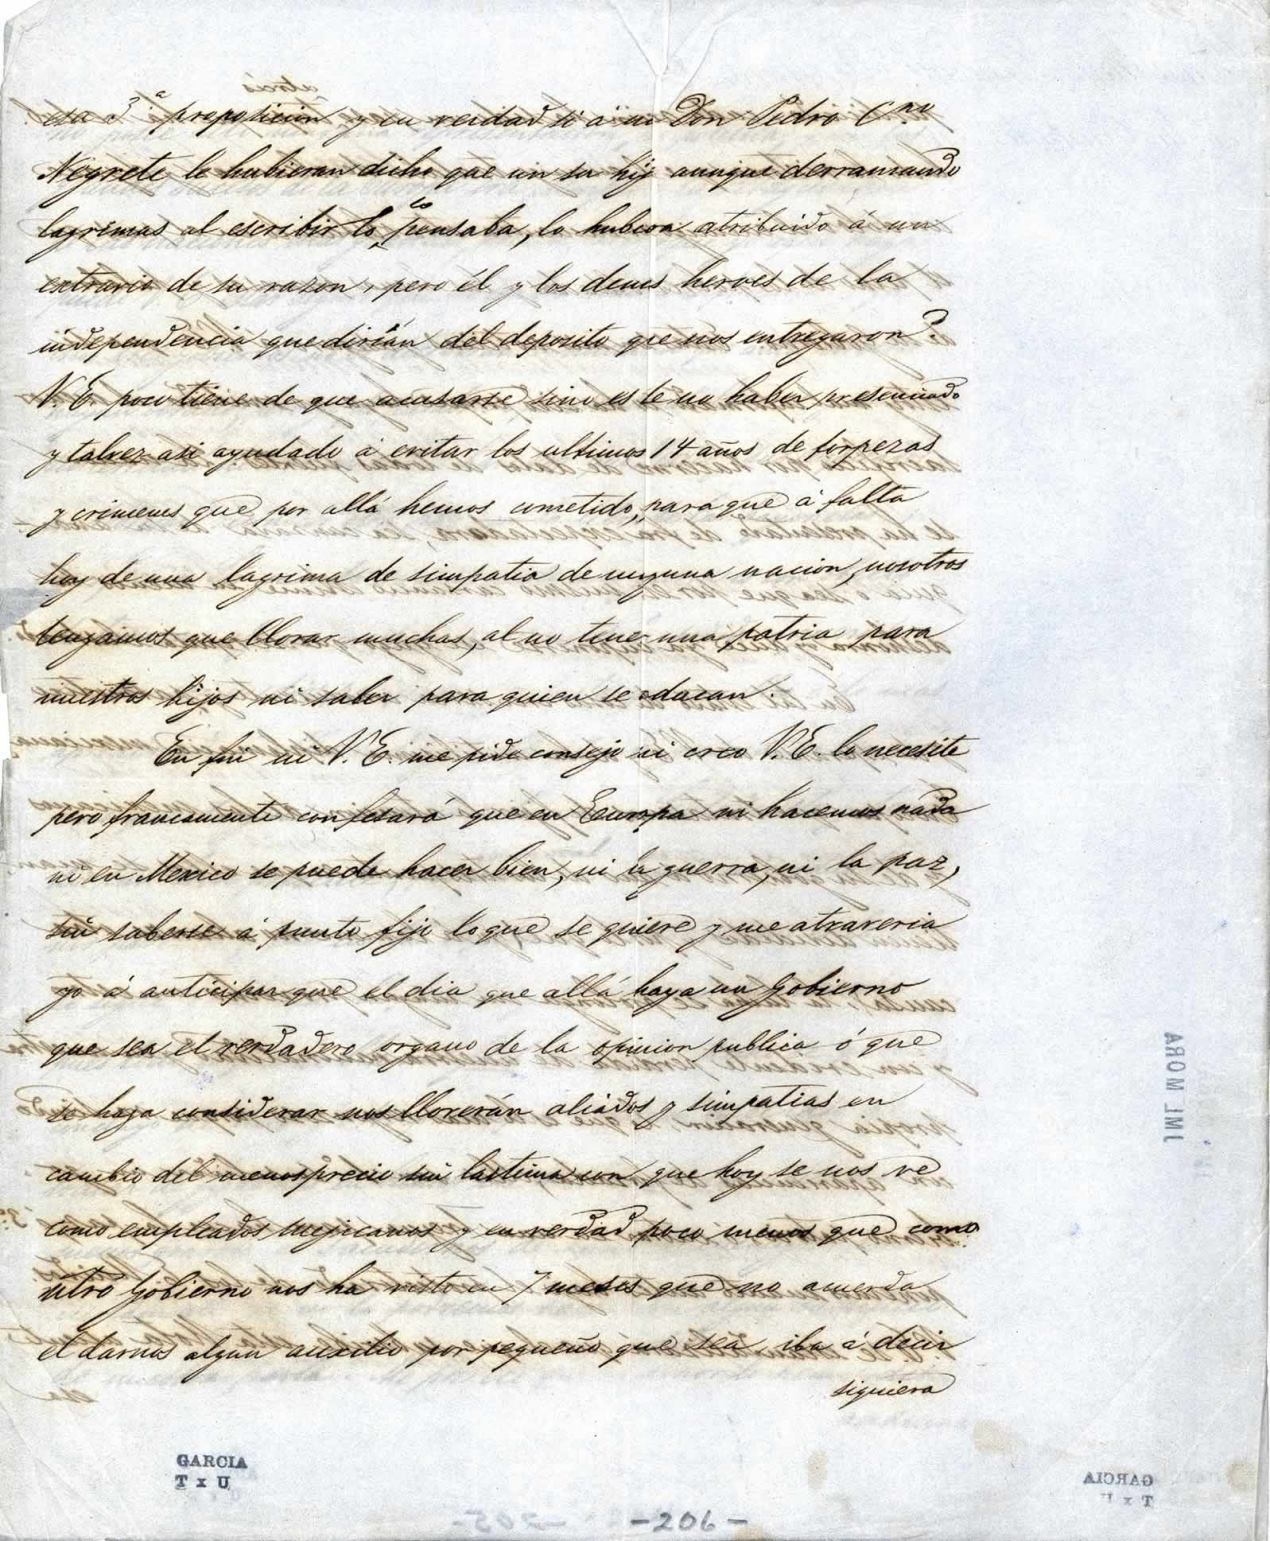 esta 3.ª proposicion y en verdad si á un Don Pedro C.no
Negrete le hubieran dicho que un su hijo aunque derramando
lagrimas al escribir lo pensaba, lo hubiera atribuido á un
extravio de su razon, pero él y los demas heroes de la
independencia que dirían del deposito que nos entregaron?
V.E. poco tiene de que acusarse sino es le no haber presenciado
y talvez asi ayudado á evitar los ultimos 14 años de torpezas
y crimenes que por allá hemos cometido, para que á falta
hoy de una lagrima de simpatia de ninguna nacion, nosotros
tengamos que llorar muchas, al no tener una patria para
nuestros hijos ni saber para quien se educan.
En fin ni V.E. me pide consejo ni creo V.E. lo necesite
pero francamente confesará que en Europa ni hacemos nada
ni en Mexico se puede hacer bien, ni la guerra, ni la paz,
sin saberse á punto fijo lo que se quiere y me atraveria
yo á anticipar que el dia que allá haya un Gobierno
que sea el verdadero organo de la opinion publica ó que
se haga considerar nos lloverán aliados y simpatias en
cambio del menosprecio sin lastima con que hoy se nos ve
como empleados mejicanos y en verdad poco menos que como
ntro Gobierno nos ha visto en 7 meses que no acuerda
el darnos algun auxilio por pequeño que sea, iba á decir
siquiera
JML MORA
GARCIA
T x U
GARCIA
T x U
-205-
-206-